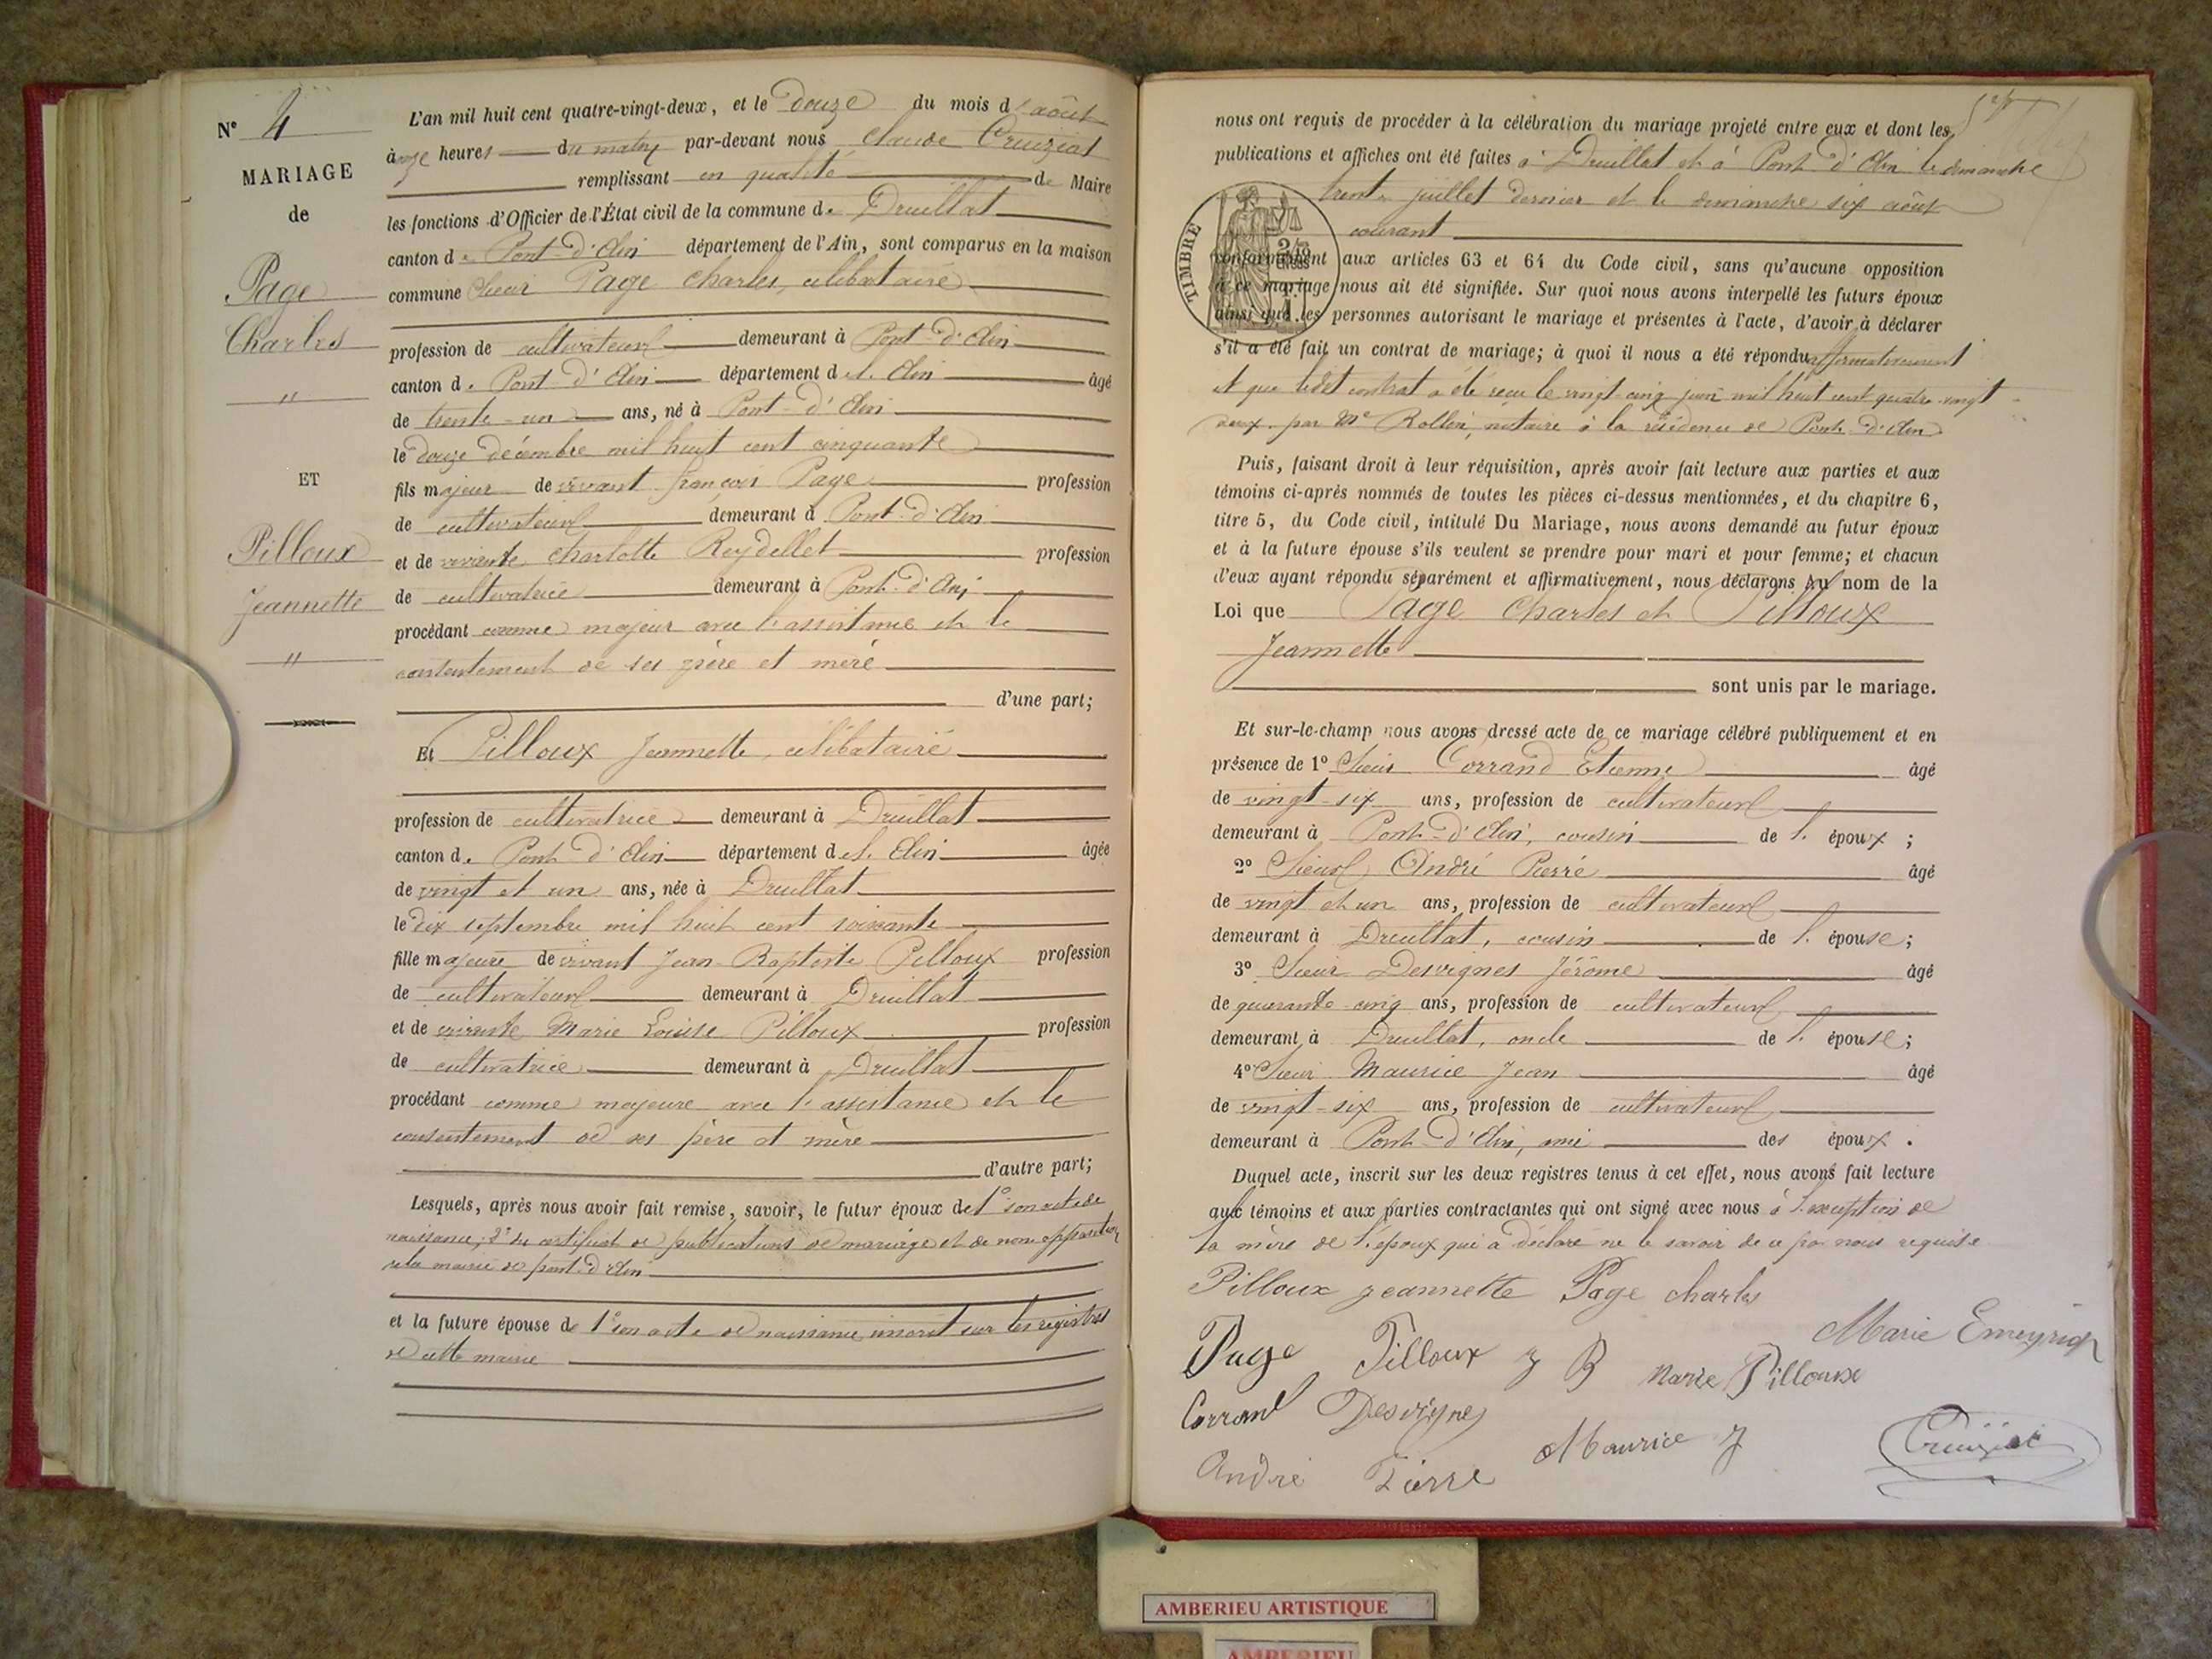 N° 4
MARIAGE
de
Page
Charles
"
ET
Pilloux
Jeannette
"
L'an mil huit cent quatre-vingt-deux, et le douze du mois d'août
à onze heures du matin par-devant nous Claude Cruiziat
remplissant en qualité de Maire
les fonctions d'Officier de l'État civil de la commune de Druillat
canton de Pont-d'Ain département de l'Ain, sont comparus en la maison
commune Sieur Page Charles, célibataire
profession de cultivateur demeurant à Pont-d'Ain
canton de Pont-d'Ain département de l'Ain âgé
de trente-un ans, né à Pont-d'Ain
le douze décembre mil huit cent cinquante
fils majeur de vivant françois Page profession
de cultivateur demeurant à Pont-d'Ain
et de vivante Charlotte Reydellet profession
de cultivatrice demeurant à Pont-d'Ain
procédant comme majeur avec l'assistance et le
consentement de ses père et mère
d'une part;
Et Pilloux Jeannette, célibataire
profession de cultivatrice demeurant à Druillat
canton de Pont-d'Ain département de l'Ain âgée
de vingt et un ans, née à Druillat
le dix septembre mil huit cent soixante
fille majeure de vivant Jean-Baptiste Pilloux profession
de cultivateur demeurant à Druillat
et de vivante Marie Louise Pilloux profession
de cultivatrice demeurant à Druillat
procédant comme majeure avec l'assistance et le
consentement de ses père et mère
d'autre part;
Lesquels, après nous avoir fait remise, savoir, le futur époux de 1° son acte de
naissance; 2° du certificat de publications de mariage et de non opposition
de la mairie de pont-d'Ain
et la future épouse de 1° son acte de naissance inscrit sur les registres
de cette mairie
nous ont requis de procéder à la célébration du mariage projeté entre eux et dont les
publications et affiches ont été faites à Druillat et à Pont-d'Ain le dimanche
trente juillet dernier et le dimanche six août
courant
TIMBRE
conformément aux articles 63 et 64 du Code civil, sans qu'aucune opposition
à ce mariage nous ait été signifiée. Sur quoi nous avons interpellé les futurs époux
ainsi que les personnes autorisant le mariage et présentes à l'acte, d'avoir à déclarer
s'il a été fait un contrat de mariage; à quoi il nous a été répondu affirmativement
et que ledit contrat a été reçu le vingt-cinq juin mil huit cent quatre-vingt
deux par Me Rollin, notaire à la résidence de Pont-d'Ain
Puis, faisant droit à leur réquisition, après avoir fait lecture aux parties et aux
témoins ci-après nommés de toutes les pièces ci-dessus mentionnées, et du chapitre 6,
titre 5, du Code civil, intitulé Du Mariage, nous avons demandé au futur époux
et à la future épouse s'ils veulent se prendre pour mari et pour femme; et chacun
d'eux ayant répondu séparément et affirmativement, nous déclarons au nom de la
Loi que Page Charles et Pilloux
Jeannette
sont unis par le mariage.
Et sur-le-champ nous avons dressé acte de ce mariage célébré publiquement et en
présence de 1° Sieur Corrand Etienne âgé
de vingt-six ans, profession de cultivateur
demeurant à Pont-d'Ain, cousin de l'époux;
2° Sieur André Pierre âgé
de vingt et un ans, profession de cultivateur
demeurant à Druillat, cousin de l'épouse;
3° Sieur Desvignes Jérôme âgé
de quarante-cinq ans, profession de cultivateur
demeurant à Druillat, oncle de l'épouse;
4° Sieur Maurice Jean âgé
de vingt-six ans, profession de cultivateur
demeurant à Pont-d'Ain, ami des époux.
Duquel acte, inscrit sur les deux registres tenus à cet effet, nous avons fait lecture
aux témoins et aux parties contractantes qui ont signé avec nous à l'exception de
la mère de l'époux qui a déclaré ne le savoir de ce par nous requise
Pilloux jeannette Page charles
Page Pilloux J B Marie Pilloux Marie
Corrand Desvignes
André Pierre Maurice J Cruiziat
AMBERIEU ARTISTIQUE
AMBERIEU